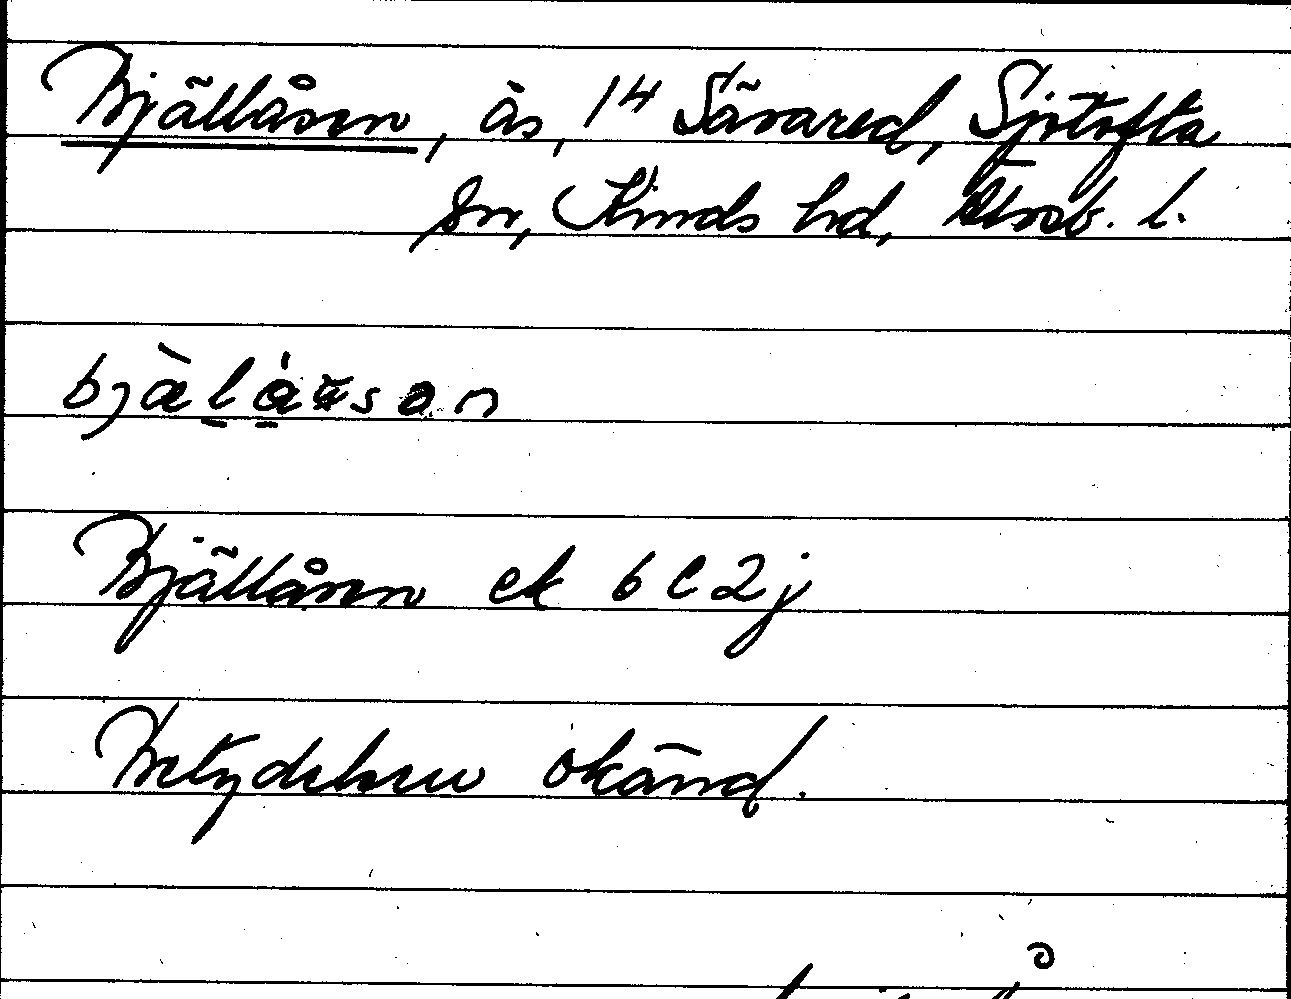 Bjällåsen, ås, 14 Sävared, Sjötofta
sn, Kinds hd, Älvsb. l.
Bjällåsen ek 6 C 2 j
Betydelsen okänd.